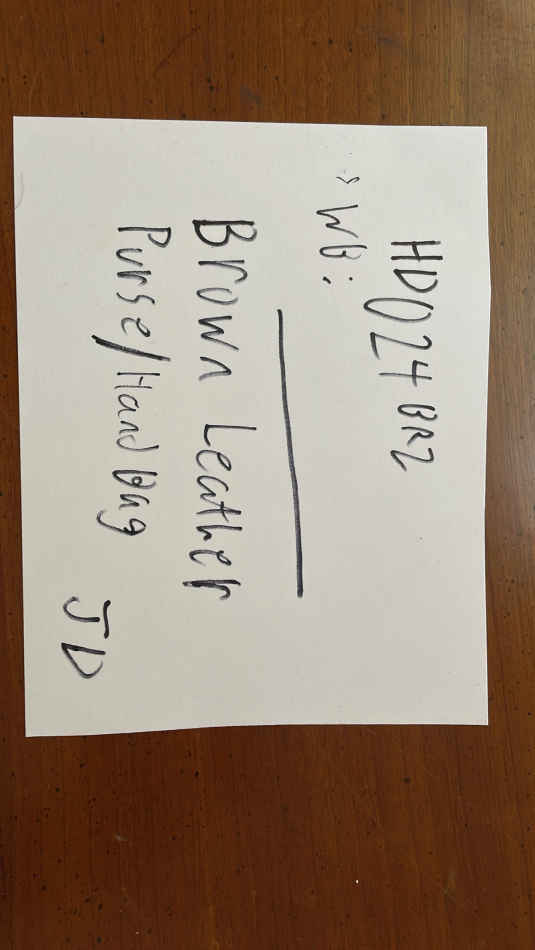 HD024 BRZ
WB:
Brown Leather
Purse/Handbag
JD